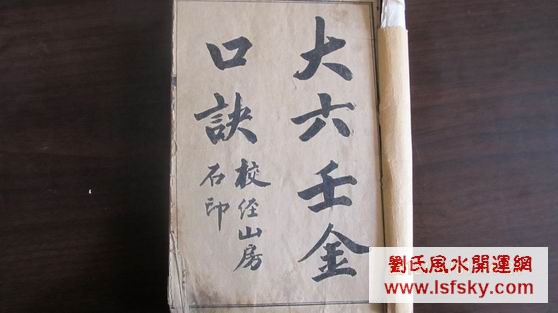 大六壬金
口訣
校经山房
石印
劉氏風水開運網
www.lsfsky.com